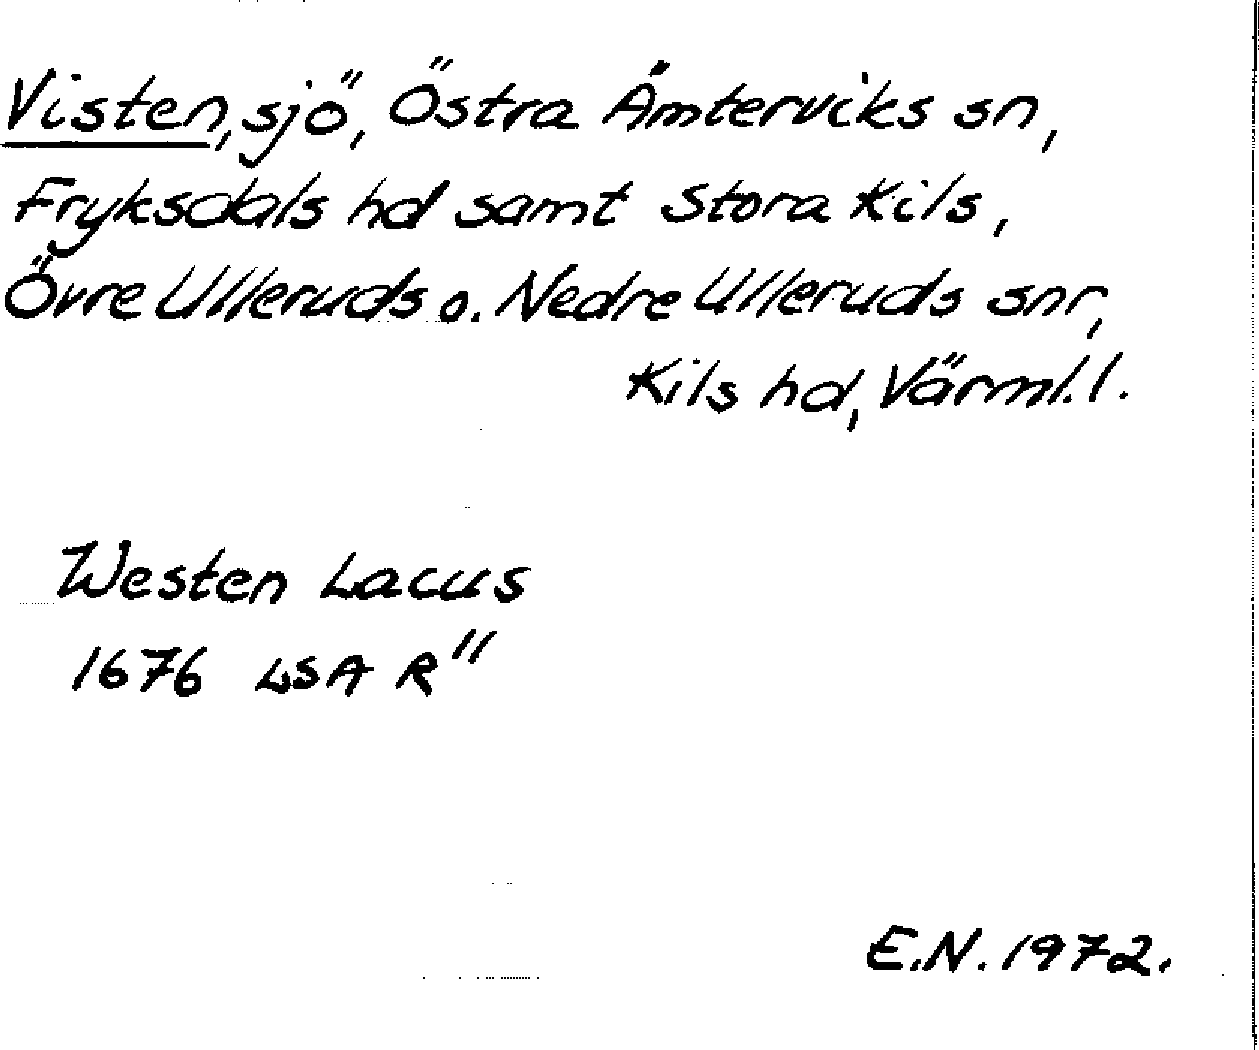 Visten, sjö, Östra Ämterviks sn,
Fryksdals hd samt Stora Kils,
Övre Ulleruds o. Nedre Ulleruds snr,
Kils hd, Värml. l.
Westen Lacus
1676 LSA R"
E.N. 1972.